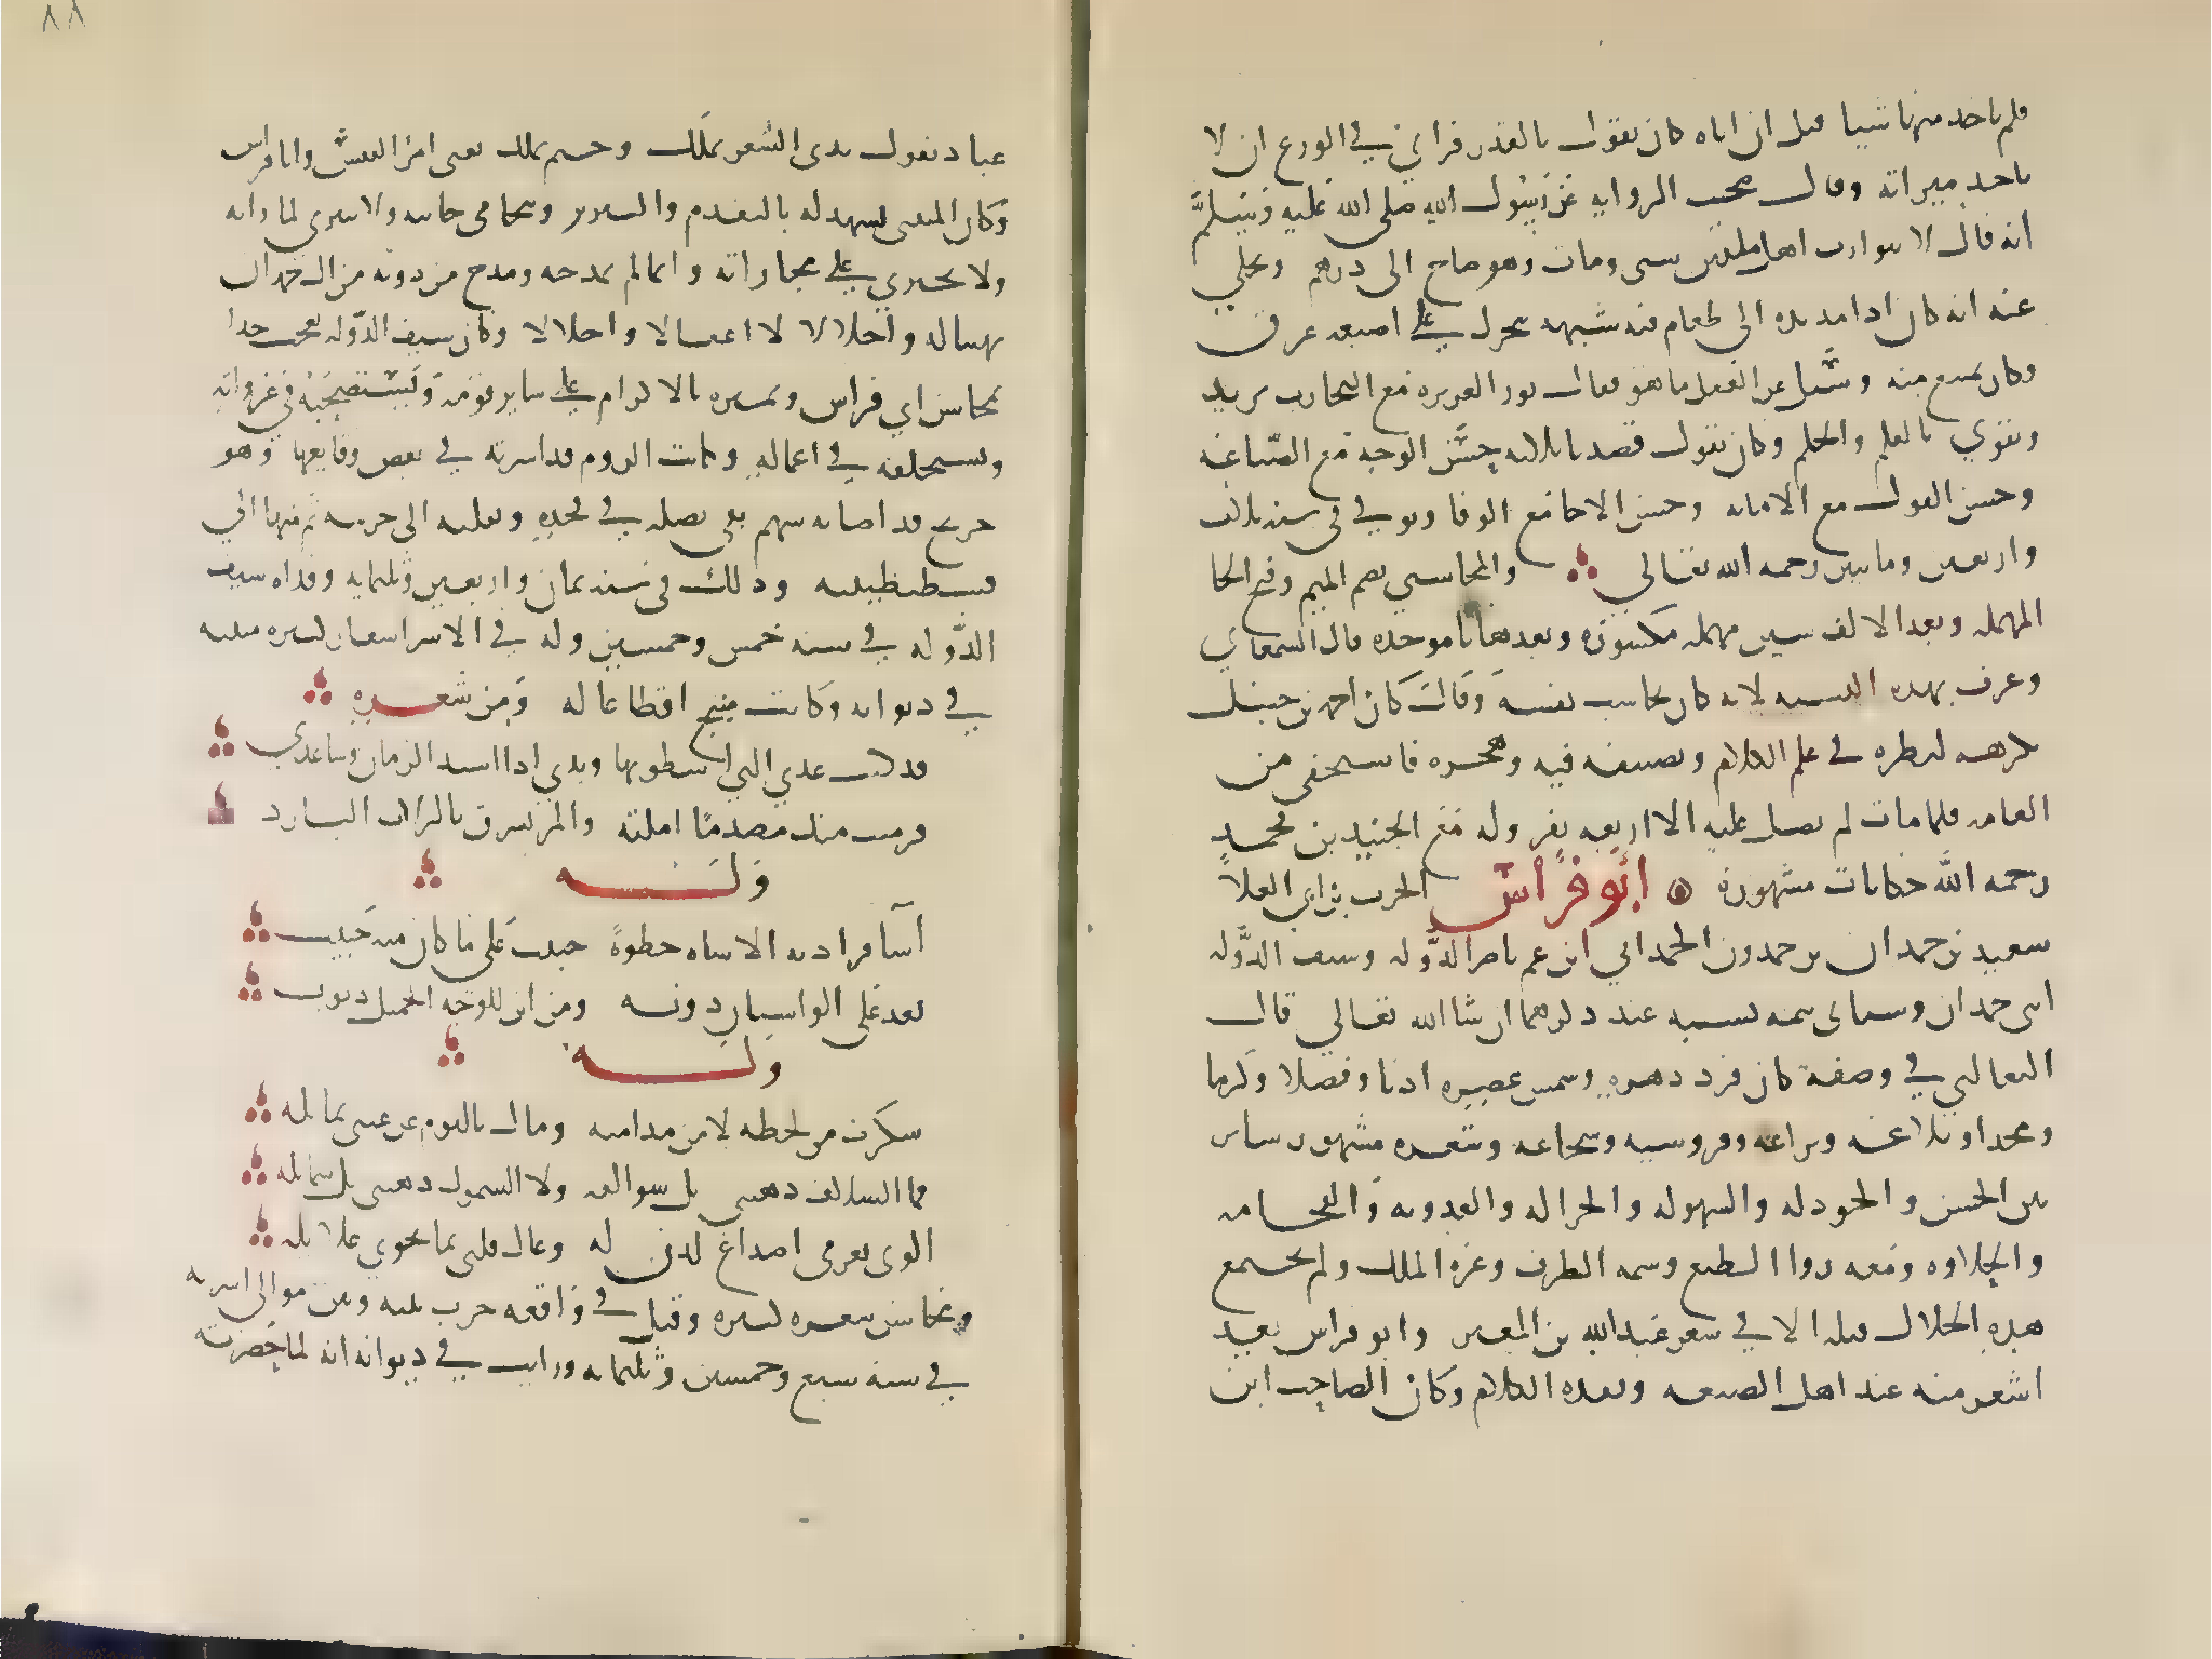 فلم ياخذ منها شيا قيل ان اباه كان يقول بالقدر فراى في الورع ان لا
ياخذ ميراثه وقال صحت الرواية عن رسول الله صلى الله عليه وسلم
انه قال لا يتوارث اهل ملتين شى ومات وهو محتاج الى درهم ويحكي
عنه انه كان اذا مد يده الى طعام فيه شبهه تحرك على اصبعه عرق
وكان يمتنع منه وسُئل عن العقل ما هو فقال نور الغريزه مع التجارب يزيد
ويقوي بالعلم والحلم وكان يقول فقدنا ثلاثه حسن الوجه مع الصيانه
وحسن القول مع الامانه وحسن الاخا مع الوفا وتوفي في سنه ثلاث
واربعين ومايتين رحمه الله تعالى والمحاسبي بضم الميم وفتح الحا
المهمله وبعد الالف سين مهمله مكسوره وبعدها با موحده قال السمعاني
وعرف بهذه النسبه لانه كان يحاسب نفسه وقال كان احمد بن حنبل
يكرهه لنظره في علم الكلام وتصنيفه فيه وهجره فاستخفى من
العامه فلما مات لم يصل عليه الا اربعه نفر وله مع الجنيد بن محمد
رحمه الله حكايات مشهورة ابو فراس الحرث بن ابي العلا
سعيد بن حمدان بن حمدون الحمداني ابن عم ناصر الدوله وسيف الدوله
ابنى حمدان وسياتى تتمه نسبه عند ذكرهما ان شا الله تعالي قال
الثعالبي في وصفه كان فرد دهره وشمس عصره ادبا وفضلا وكرما
ومجدا وبلاغه وبراعه وفروسيه وشجاعه وشعره مشهور ساير
بين الحسن والجوده والسهوله والجزاله والعذوبه والفخامه
والحلاوه ومعه روا الطبع وسمه الظرف وعزه الملك ولم تجتمع
هذه الخلال قبله الا في شعر عبد الله بن المعتز وابو فراس يعد
اشعر منه عند اهل الصنعه ونقده الكلام وكان الصاحب ابن
٨٨
عباد يقول بدى الشعر بملك وختم بملك يعنى امرا القيس وابا فراس
وكان المتنبى يشهد له بالتقدم والتبريز ويتحامى جانبه ولا ينبري لمباراته
ولا يجتري على مجاراته وانما لم يمدحه ومدح من دونه من ال حمدان
تهيبا له واجلالا لا اغفالا واخلالا وكان سيف الدوله يعجب جدا
بمحاسن ابي فراس ويميزه بالاكرام على ساير قومه ويستصحبه في غزواته
ويستخلفه في اعماله وكانت الروم قد اسرته في بعض وقايعها وهو
جريح قد اصابه سهم بقى نصله في فخذه ونقلته الى خرشنه ثم منها الي
قسطنطينيه وذلك في سنه ثمان واربعين وثلثمايه وفداه سيف
الدوله في سنه خمس وخمسين وله في الاسر اشعار كثيره مثبته
في ديوانه وكانت منبج اقطاعا له ومن شعره
قد كنت عدتي التي اسطو بها ويدي اذا اشتد الزمان وساعدي
فرميت منك بضد ما املته والمرء يشرق بالزلال البارد
وله
اسا فزادته الاساه حظوةً حبيب على ما كان منه حبيب
يعد علي الواشيان ذنوبه ومن اين للوجه الجميل ذنوب
وله
سكرت من لحظه لا من مدامته ومال بالنوم عن عينى تمايله
فما السلاف دهتني بل سوالفه ولا الشمول دهتنى بل شمايله
الوى بعزمى اصداغ لوين له وغال قلبى بما تحوي غلايله
ومحاسن شعره كثيره وقتل في واقعه جرت بينه وبين موالى اسرته
في سنه سبع وخمسين وثلثمايه ورايت في ديوانه انه لما حضرته